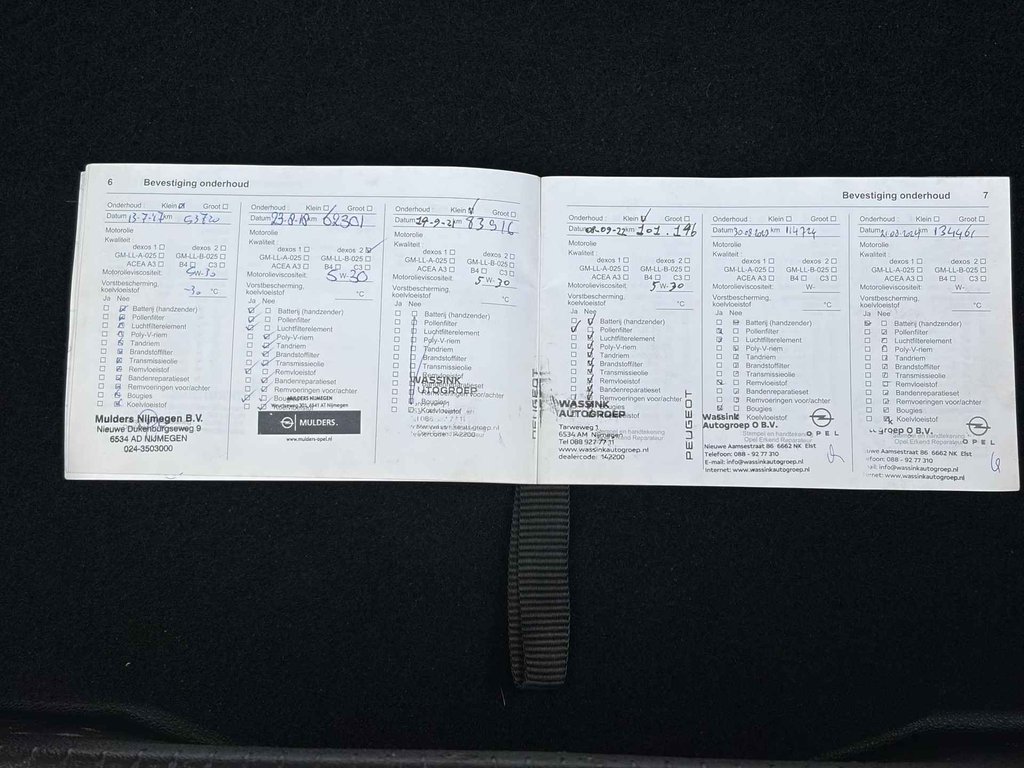 6 Bevestiging onderhoud
Onderhoud : Klein Groot
Datum 13-7-17 km 63720
Motorolie
Kwaliteit
dexos 1 dexos 2
GM-LL-A-025 GM-LL-B-025
ACEA A3 B4 C3
Motorolieviscositeit: 5W-30
Vorstbescherming,
koelvloeistof -30 °C
Ja Nee
Batterij (handzender)
Pollenfilter
Luchtfilterelement
Poly-V-riem
Tandriem
Brandstoffilter
Transmissieolie
Remvloeistof
Bandenreparatieset
Remvoeringen voor/achter
Bougies
Koelvloeistof
Mulders Nijmegen B.V.
Nieuwe Dukenburgseweg 9
6534 AD NIJMEGEN
024-3503000
Onderhoud : Klein Groot
Datum km
Motorolie
Kwaliteit :
dexos 1 dexos 2
GM-LL-A-025 GM-LL-B-025
ACEA A3 B4 C3
Motorolieviscositeit: 5 W-30
Vorstbescherming,
koelvloeistof °C
Ja Nee
Batterij (handzender)
Pollenfilter
Luchtfilterelement
Poly-V-riem
Tandriem
Brandstoffilter
Transmissieolie
Remvloeistof
Bandenreparatieset
Remvoeringen voor/achter
MULDERS NIJMEGEN
MULDERS.
www.mulders-opel.nl
Onderhoud : Klein Groot
Datum 14-9-21 km 83516
Motorolie
Kwaliteit :
dexos 1 dexos 2
GM-LL-A-025 GM-LL-B-025
ACEA A3 B4 C3
Motorolieviscositeit: 5 W-30
Vorstbescherming,
koelvloeistof °C
Ja Nee
Batterij (handzender)
Pollenfilter
Luchtfilterelement
Poly-V-riem
Tandriem
Brandstoffilter
Transmissieolie
Remvloeistof
WASSINK
AUTOGROEP
Remvoeringen voor/achter
Bougies
Koelvloeistof
Bevestiging onderhoud 7
Onderhoud : Klein Groot
Datum 08-09-22 km 101.196
Motorolie
Kwaliteit :
dexos 1 dexos 2
GM-LL-A-025 GM-LL-B-025
ACEA A3 B4 C3
Motorolieviscositeit: 5 W-30
Vorstbescherming,
koelvloeistof °C
Ja Nee
Batterij (handzender)
Pollenfilter
Luchtfilterelement
Poly-V-riem
Tandriem
Brandstoffilter
Transmissieolie
Remvloeistof
Bandenreparatieset
Remvoeringen voor/achter
WASSINK
AUTOGROEP
PEUGEOT
Tarweweg 1
6534 AM Nijmegen
Tel 088 927 77 11
www.wassinkautogroep.nl
dealercode: 142200
Onderhoud : Klein Groot
Datum 30 08 2023 km 114724
Motorolie
Kwaliteit :
dexos 1 dexos 2
GM-LL-A-025 GM-LL-B-025
ACEA A3 B4 C3
Motorolieviscositeit: W-
Vorstbescherming,
koelvloeistof °C
Ja Nee
Batterij (handzender)
Pollenfilter
Luchtfilterelement
Poly-V-riem
Tandriem
Brandstoffilter
Transmissieolie
Remvloeistof
Bandenreparatieset
Remvoeringen voor/achter
Bougies
Koelvloeistof
Wassink
Autogroep O B.V.
OPEL
Stempel en handtekening
Opel Erkend Reparateur
Nieuwe Aamsestraat 86 6662 NK Elst
Telefoon: 088 - 92 77 310
E-mail: info@wassinkautogroep.nl
Internet: www.wassinkautogroep.nl
Onderhoud : Klein Groot
Datum km 134461
Motorolie
Kwaliteit :
dexos 1 dexos 2
GM-LL-A-025 GM-LL-B-025
ACEA A3 B4 C3
Motorolieviscositeit: W-
Vorstbescherming,
koelvloeistof °C
Ja Nee
Batterij (handzender)
Pollenfilter
Luchtfilterelement
Poly-V-riem
Tandriem
Brandstoffilter
Transmissieolie
Remvloeistof
Bandenreparatieset
Remvoeringen voor/achter
Bougies
Koelvloeistof
groep O B.V.
OPEL
Stempel en handtekening
Opel Erkend Reparateur
uwe Aamsestraat 86 6662 NK Elst
foon: 088 - 92 77 310
ail: info@wassinkautogroep.nl
rnet: www.wassinkautogroep.nl